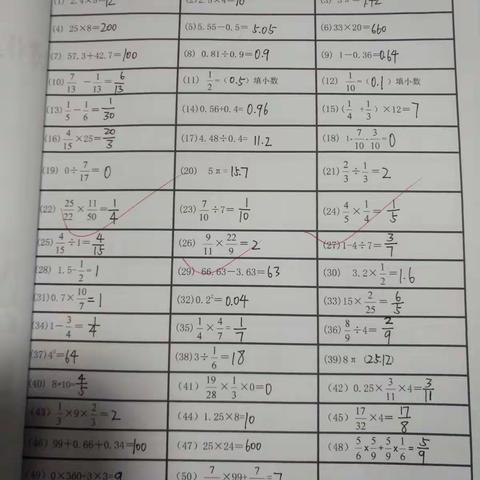 (4) 25×8=200 (5) 5.55-0.5=5.05 (6) 33×20=660
(7) 57.3+42.7=100 (8) 0.81÷0.9=0.9 (9) 1-0.36=0.64
(10) 7/13 - 1/13 = 6/13 (11) 1/2 =(0.5)填小数 (12) 1/10 =(0.1)填小数
(13) 1/5 - 1/6 = 1/30 (14) 0.56+0.4=0.96 (15) (1/4 + 1/3) ×12=7
(16) 4/15 ×25= 20/3 (17) 4.48÷0.4=11.2 (18) 1- 7/10 - 3/10 =0
(19) 0÷ 7/17 =0 (20) 5π=15.7 (21) 2/3 ÷ 1/3 =2
(22) 25/22 × 11/50 = 1/4 (23) 7/10 ÷7= 1/10 (24) 4/5 × 1/4 = 1/5
(25) 4/15 ÷1= 4/15 (26) 9/11 × 22/9 =2 (27) 1-4÷7= 3/7
(28) 1.5- 1/2 =1 (29) 66.63-3.63=63 (30) 3.2× 1/2 =1.6
(31) 0.7× 10/7 =1 (32) 0.2²=0.04 (33) 15× 2/25 = 6/5
(34) 1- 3/4 = 1/4 (35) 1/4 × 4/7 = 1/7 (36) 8/9 ÷4= 2/9
(37) 4³=64 (38) 3÷ 1/6 =18 (39) 8π (25.12)
(40) 8÷10= 4/5 (41) 19/28 × 1/3 ×0=0 (42) 0.25× 3/11 ×4= 3/11
(43) 1/3 ×9× 2/3 =2 (44) 1.25×8=10 (45) 17/32 ×4= 17/8
(46) 99+0.66+0.34=100 (47) 25×24=600 (48) 5/6 × 5/9 + 5/9 × 1/6 = 5/9
(49) 0×360+3×3=9 (50)